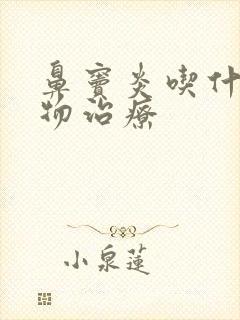 鼻竇炎喫什
物治療
小泉蓮